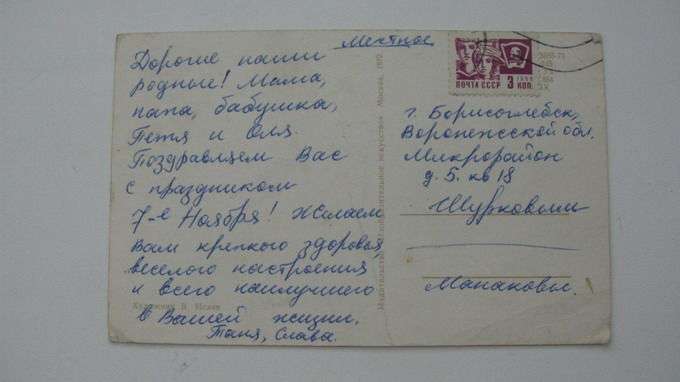 Местное
Дорогие наши
родные! Мама,
папа, бабушка,
Петя и Оля.
Поздравляем Вас
с праздником
7-е Ноября! Желаем
Вам крепкого здоровья,
веселого настроения
и всего наилучшего
в Вашей жизни.
Таня, Слава.
Художник В. Исаев
Издательство «Изобразительное искусство». Москва. 1972
ПОЧТА СССР 3 КОП.
1966
г. Борисоглебск,
Воронежской обл.
Микрорайон
д. 5. кв 18
Шурковым
Манаковы.